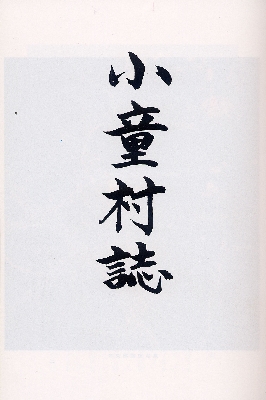 小童村誌